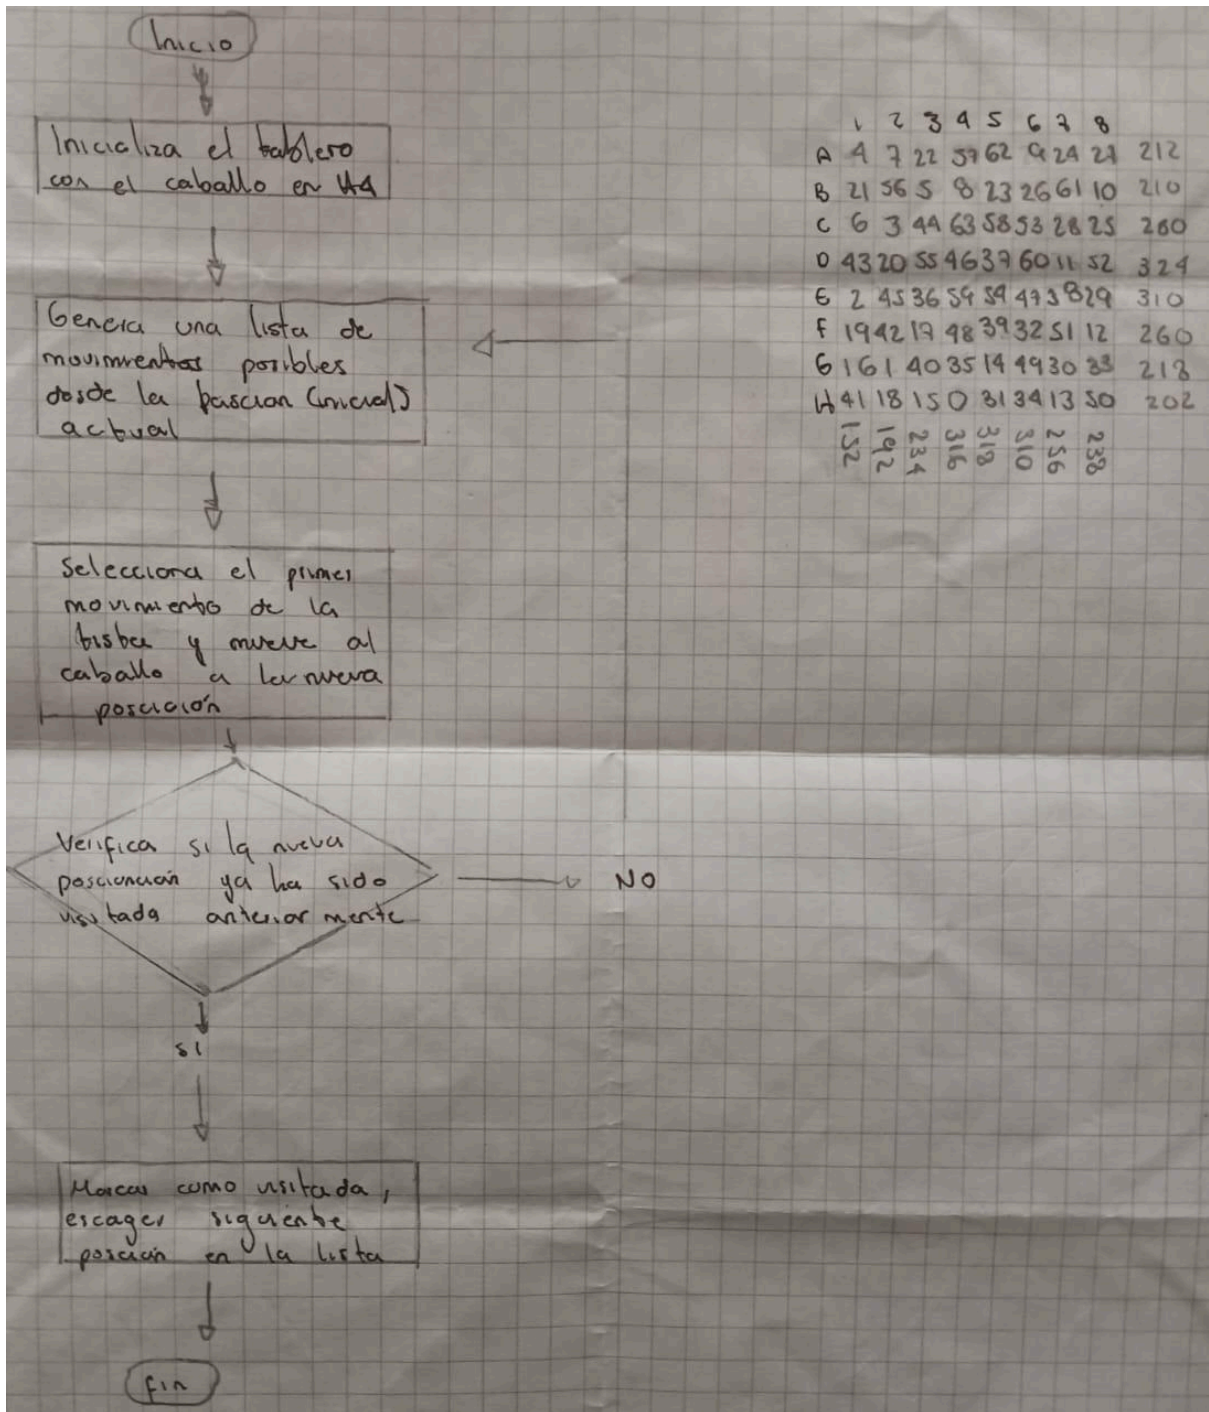 Inicio
Inicializa el tablero
con el caballo en H4
Genera una lista de
movimientos posibles
desde la (inicial)
actual
Selecciona el primer
movimiento de la
y mueve al
caballo a la nueva
Verifica si la nueva
ya ha sido
visitada anteriormente
NO
SI
Marcar como visitada,
escager siguiente
en la lista
fin
1 2 3 4 5 6 7 8
A 4 7 22 57 62 9 24 27 212
B 21 56 5 8 23 26 61 10 210
C 6 3 44 63 58 53 28 25 280
D 43 20 55 46 37 60 11 52 324
E 2 45 36 59 54 47 38 29 310
F 19 42 17 48 39 32 51 12 260
G 16 1 40 35 14 49 30 33 218
H 41 18 15 0 31 34 13 50 202
152 192 234 316 318 310 256 238